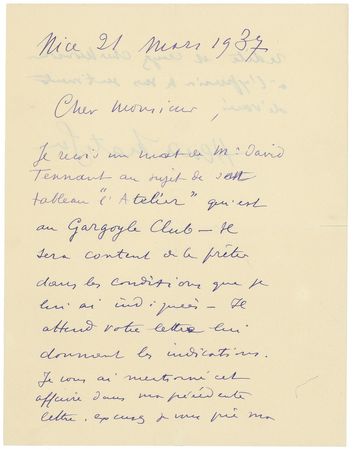 Nice 21 mars 1937
Cher Monsieur,
Je reçois un mot de Mr David
Tennant au sujet de son
tableau "l'Atelier" qui est
au Gargoyle Club – Il
sera content de le prêter
dans les conditions que je
lui ai indiquées – Il
attend votre lettre lui
donnant les indications.
Je vous ai mentionné cet
affaire dans ma précédente
lettre. excusez je vous prie ma